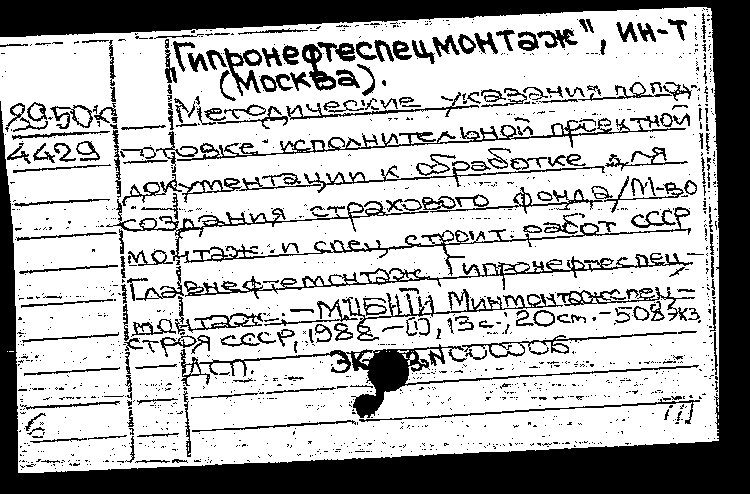 "Гипронефтеспецмонтаж", ин-т
(Москва).
8950к Методические указания по под-
4429 готовке исполнительной проектной
документации к обработке для
создания страхового фонда/М-во
монтаж. и спец. строит. работ СССР,
Главнефтемонтаж, Гипронефтеспец-
монтаж.-МЦБНТИ Минмонтажспец-
строя СССР, 1988 -[1], 13 с.; 20 см. - 508 экз
Дсп. ЭКЗ. N 000006.
6